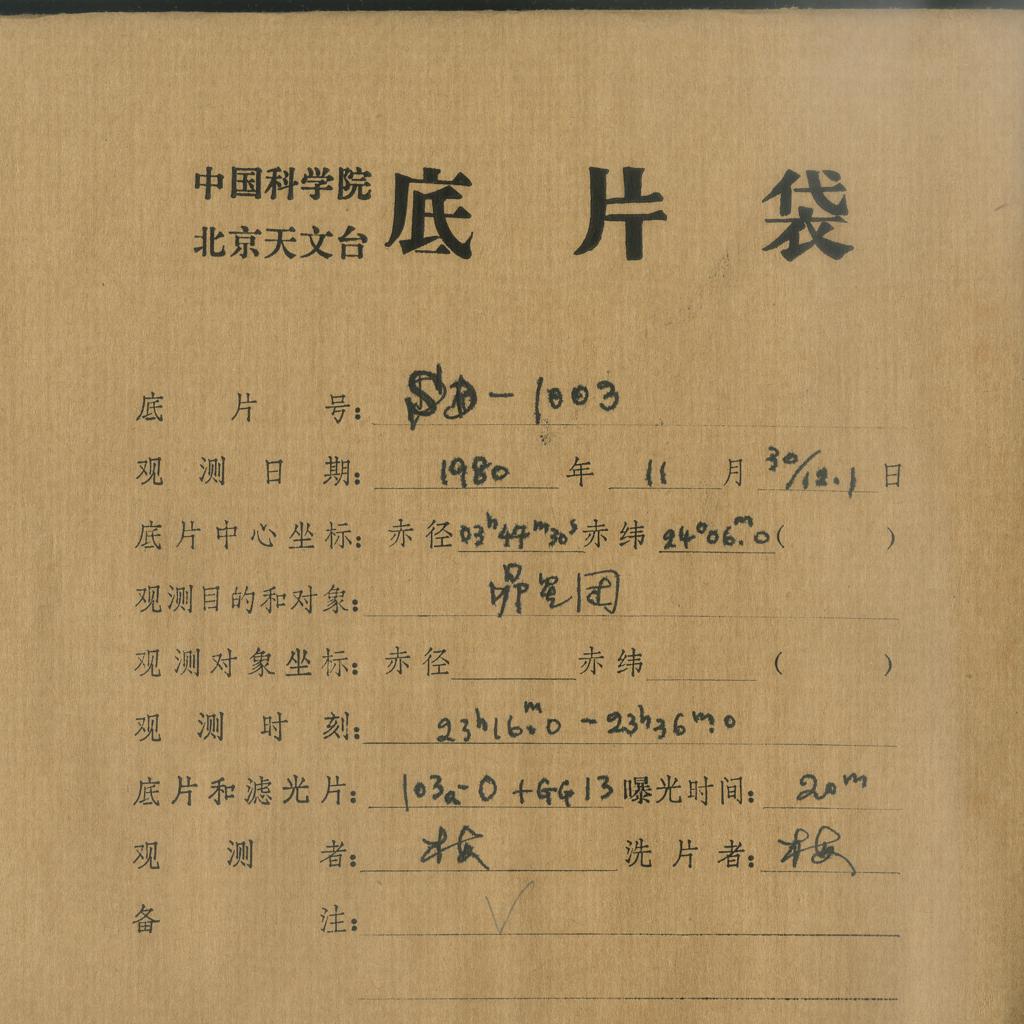 中国科学院
北京天文台
底片袋
底片号: SD-1003
观测日期: 1980 年 11 月 30/12.1 日
底片中心坐标: 赤径 03h 47m 30s 赤纬 24° 06m.0 ( )
观测目的和对象: 昴星团
观测对象坐标: 赤径 赤纬 ( )
观测时刻: 23h16m.0 - 23h36m.0
底片和滤光片: 103a-O + GG 13 曝光时间: 20m
观测者: 梅 洗片者: 梅
备注: √